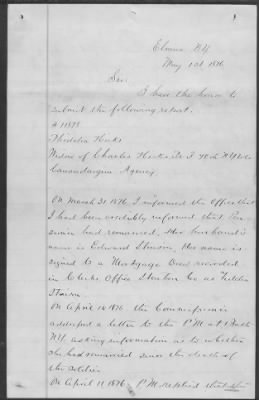 Elmira N.Y.
May 1st 1876
Sir:
I have the honor to
submit the following report.
# 11898
Widow of Charles 
Canandaigua Agency.
On March 31. 1876 I informed the Office that
I had been credibly informed that Pen-
sioner had remarried. Her husband's
name is Edward Stinson. Her name is
signed to a Mortgage Deed recorded
in Clerks Office Steuben Co as
Stinson.
On April 1876 the Commissioner
addressed a letter to the P.M. at Bath
N.Y. asking information as to whether
she had remarried since the death of
the soldier
On April 11 1876 P.M. replied that she